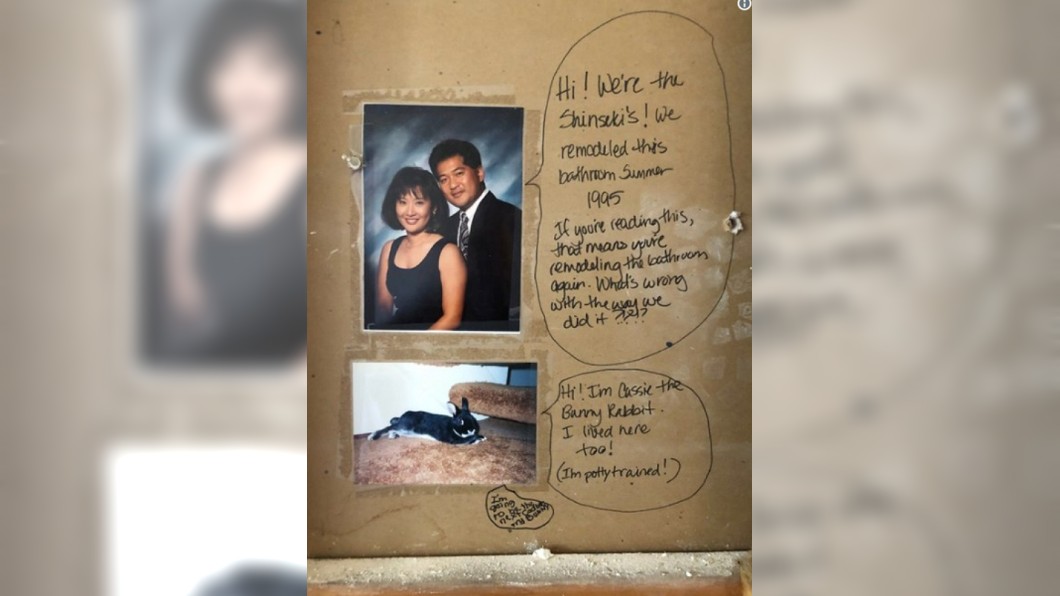 Hi! We're the
Shinseki's! We
remodeled this
bathroom Summer
1995
If you're reading this,
that means you're
remodeling the bathroom
again. What's wrong
with the way we
did it
Hi! I'm Cassie the
Bunny Rabbit.
I lived here
too!
(I'm potty trained!)
I'm
going
to be the
next